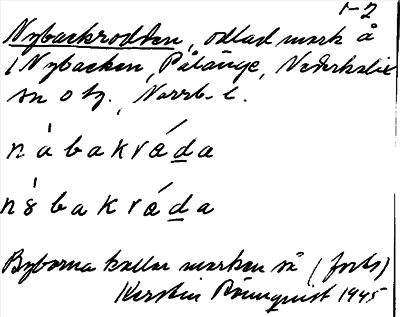 1-2
Nybackrodden, odlad mark å
(Nybacken, Pålänge, Nederkalix
sn o tg., Norrb. l.
nábakróda
nśbakróda
Byborna kallar marken så (forts)
Kerstin Rönnquist 1945